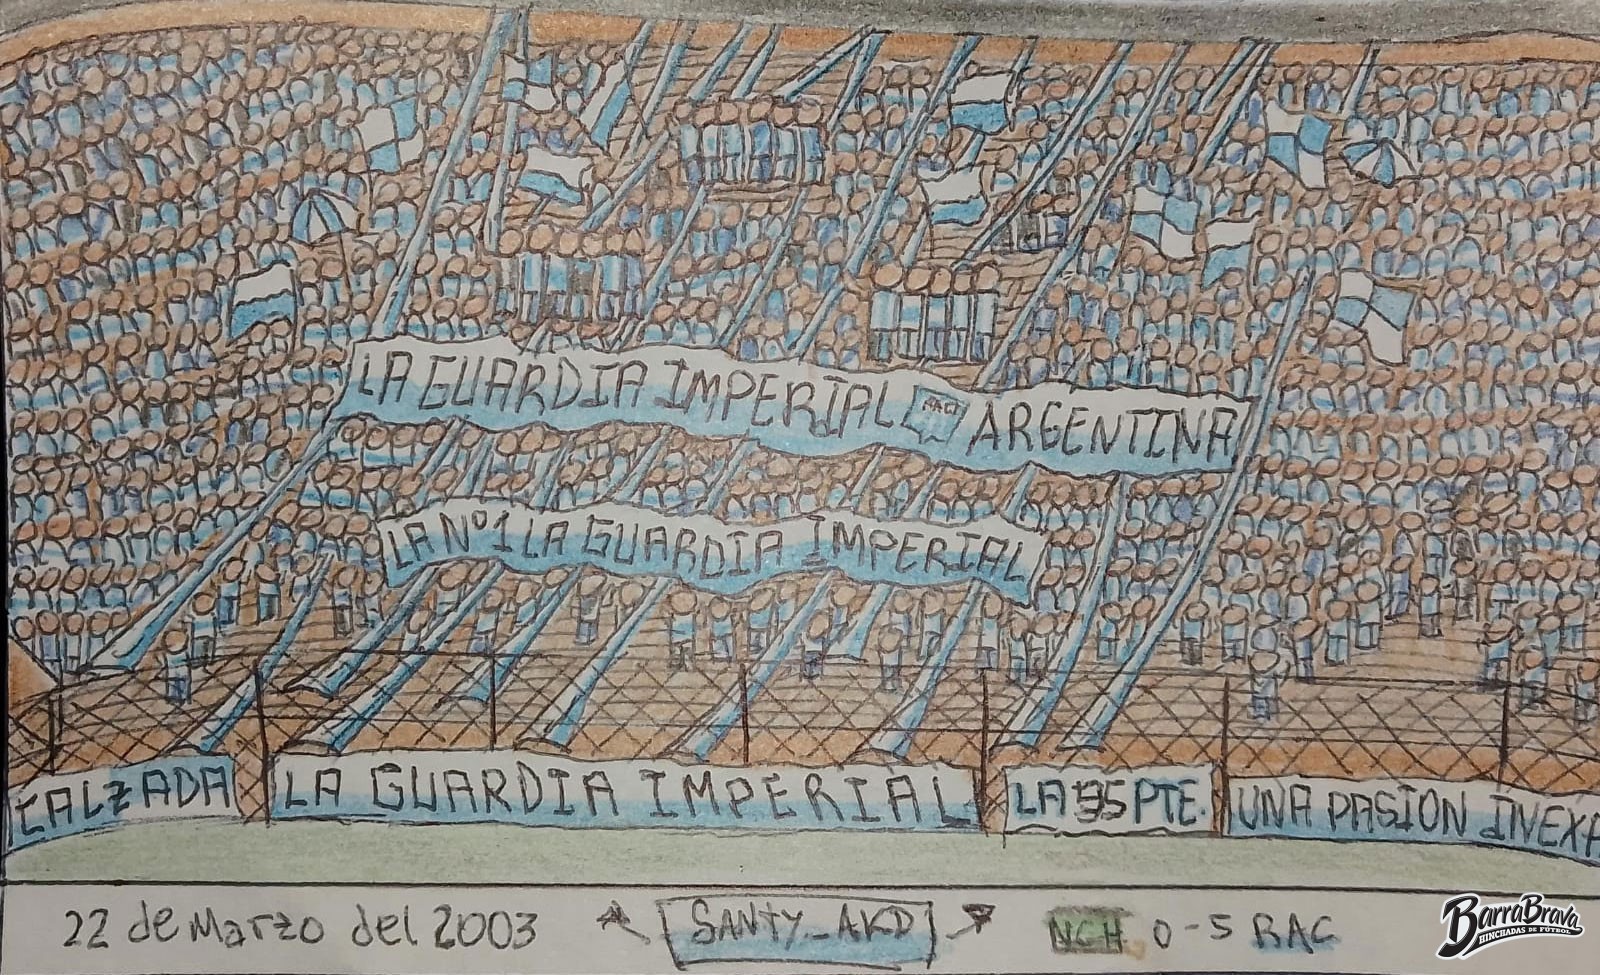 LA GUARDIA IMPERIAL RACI ARGENTINA
LA Nº1 LA GUARDIA IMPERIAL
CALZADA
LA GUARDIA IMPERIAL
LA 95 PTE.
UNA PASION INEXA
22 de Marzo del 2003
SANTY_AKD
NCH 0-5 RAC
BarraBrava
HINCHADAS DE FÚTBOL